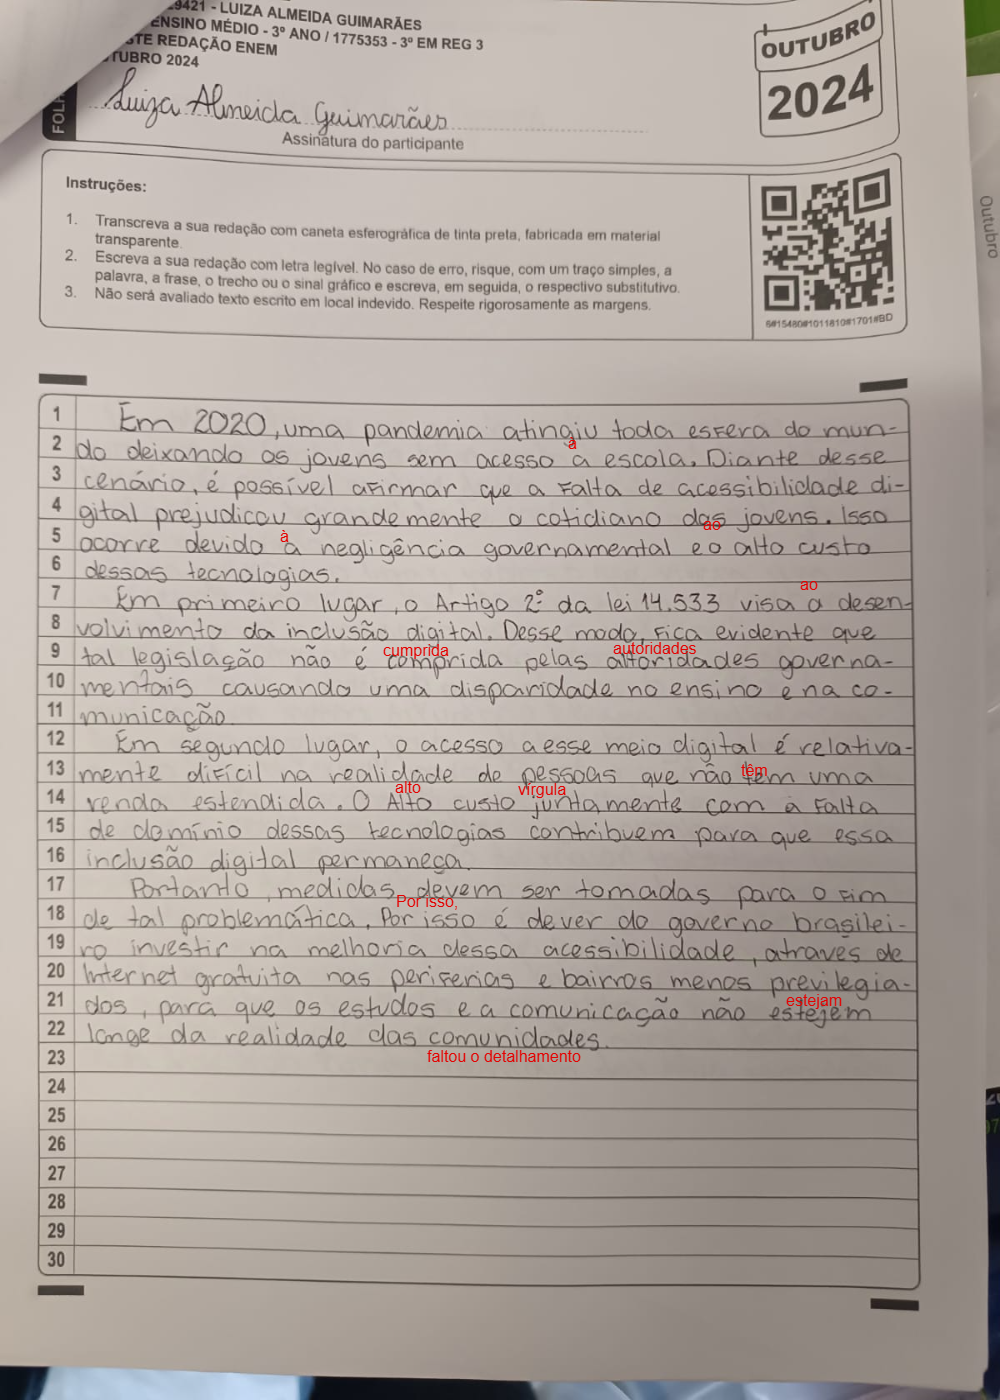 29421 - LUIZA ALMEIDA GUIMARÃES
ENSINO MÉDIO - 3º ANO / 1775353 - 3º EM REG 3
TE REDAÇÃO ENEM
TUBRO 2024
OUTUBRO
2024
Luiza Almeida Guimarães
Assinatura do participante
Instruções:
1. Transcreva a sua redação com caneta esferográfica de tinta preta, fabricada em material
transparente.
2. Escreva a sua redação com letra legível. No caso de erro, risque, com um traço simples, a
palavra, a frase, o trecho ou o sinal gráfico e escreva, em seguida, o respectivo substitutivo.
3. Não será avaliado texto escrito em local indevido. Respeite rigorosamente as margens.
Outubro
1 Em 2020, uma pandemia atingiu toda esfera do mun-
à
2 do deixando os jovens sem acesso a escola. Diante desse
3 cenário, é possível afirmar que a falta de acessibilidade di-
4 gital prejudicou grandemente o cotidiano dos jovens. Isso
à ao
5 ocorre devido a negligência governamental e o alto custo
6 dessas tecnologias.
ao
7 Em primeiro lugar, o Artigo 2º da lei 14.533 visa o desen-
8 volvimento da inclusão digital. Desse modo, fica evidente que
cumprida autoridades
9 tal legislação não é comprida pelas altoridades governa-
10 mentais causando uma disparidade no ensino e na co-
11 municação.
12 Em segundo lugar, o acesso a esse meio digital é relativa-
têm
13 mente difícil na realidade de pessoas que não tem uma
alto vírgula
14 renda estendida. O Alto custo juntamente com a falta
15 de domínio dessas tecnologias contribuem para que essa
16 inclusão digital permaneça.
17 Portanto, medidas devem ser tomadas para o fim
Por isso,
18 de tal problemática. Por isso é dever do governo brasilei-
19 ro investir na melhoria dessa acessibilidade, através de
20 Internet gratuita nas periferias e bairros menos previlegia-
estejam
21 dos, para que os estudos e a comunicação não estejem
22 longe da realidade das comunidades.
faltou o detalhamento
23
24
25
26
27
28
29
30